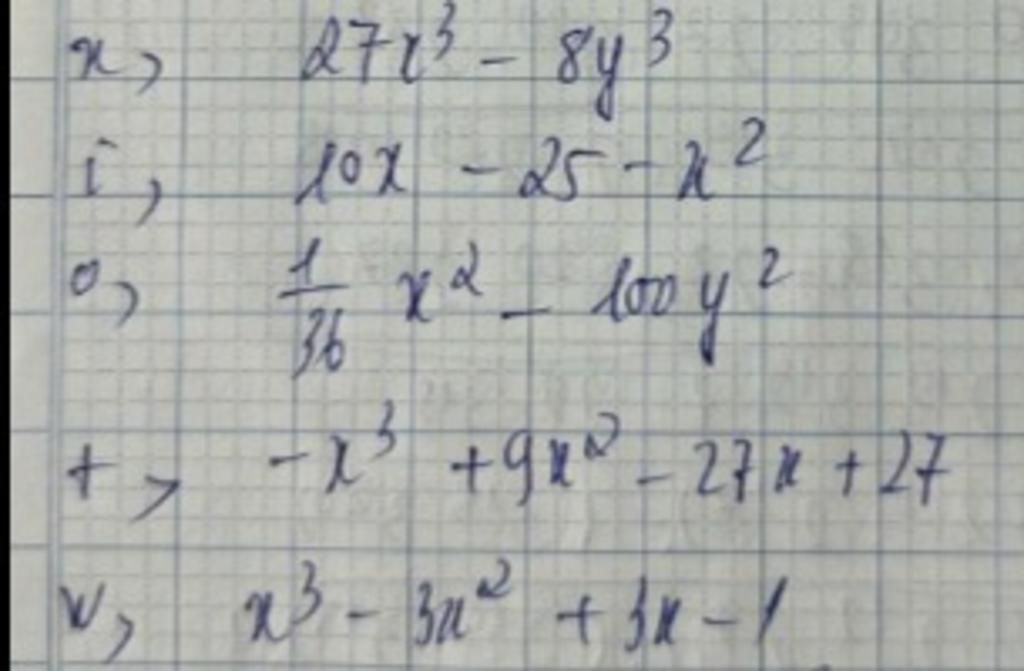 x, 27x³ - 8y³
i, 10x - 25 - x²
o, 1/36 x² - 100y²
t, -x³ + 9x² - 27x + 27
v, x³ - 3x² + 3x - 1